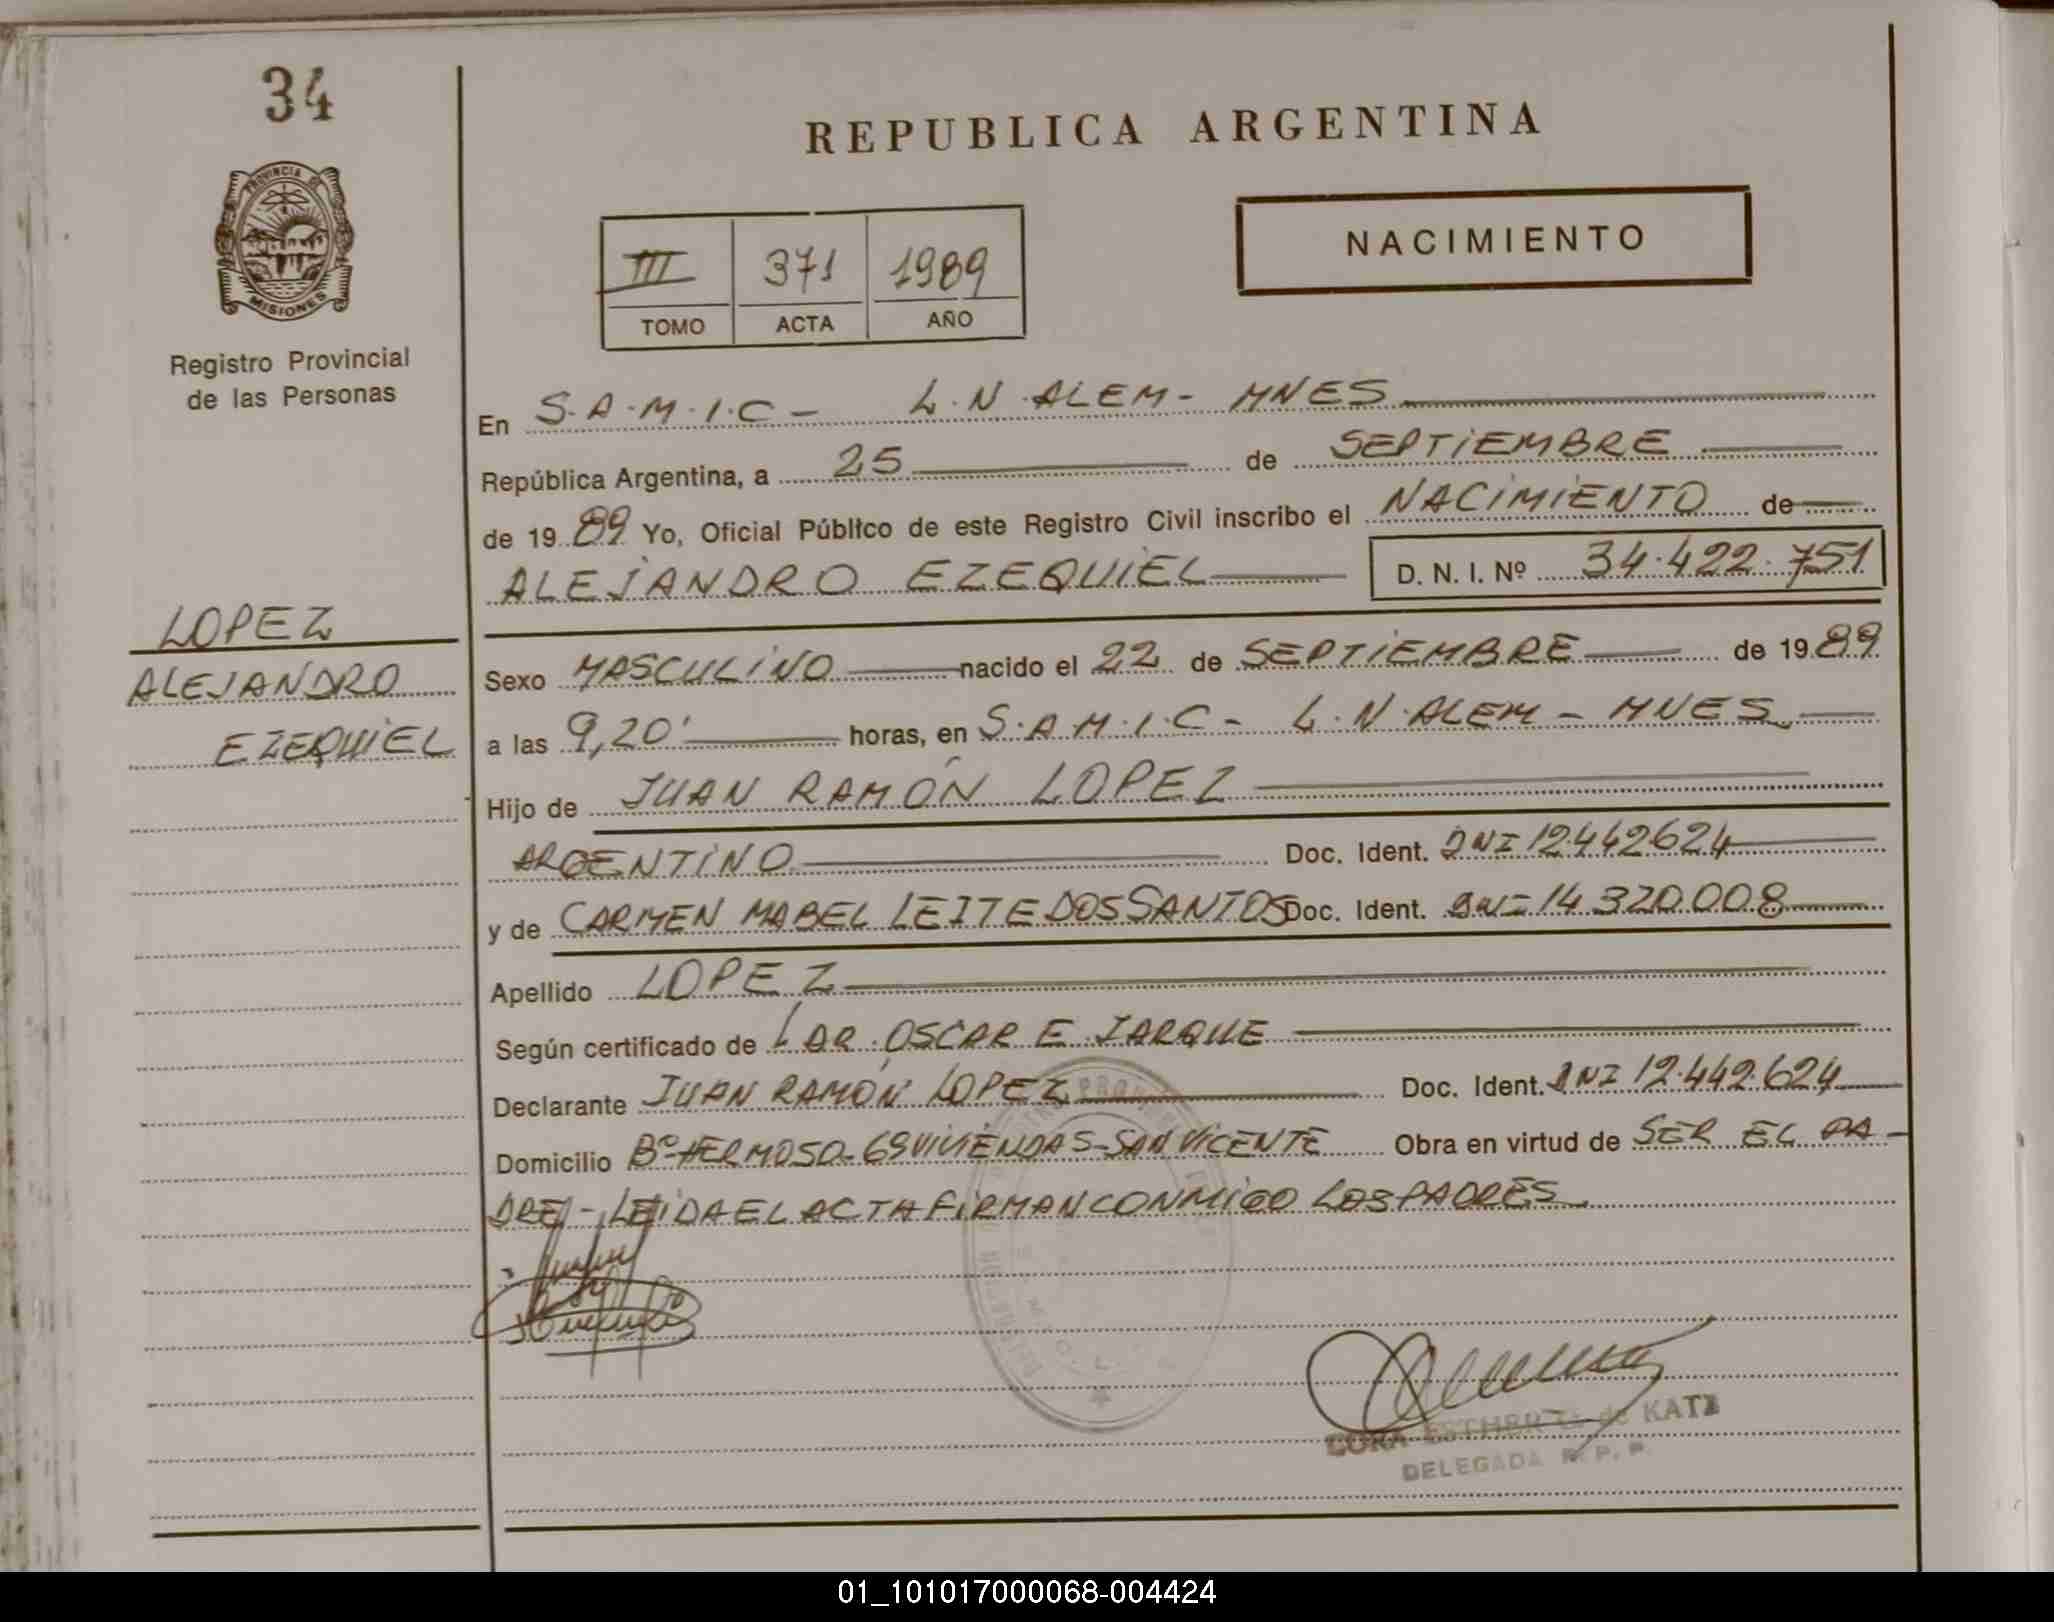 34
PROVINCIA DE
MISIONES
Registro Provincial
de las Personas
REPUBLICA ARGENTINA
NACIMIENTO
III 371 1989
TOMO ACTA AÑO
En S.A.M.I.C - L.N.ALEM - MNES
República Argentina, a 25 de SEPTIEMBRE
de 1989 Yo, Oficial Público de este Registro Civil inscribo el NACIMIENTO de
ALEJANDRO EZEQUIEL D. N. I. Nº 34.422.751
LOPEZ
ALEJANDRO
EZEQUIEL
Sexo MASCULINO nacido el 22 de SEPTIEMBRE de 1989
a las 9,20' horas, en S.A.M.I.C - L.N.ALEM - MNES
Hijo de JUAN RAMÓN LOPEZ
ARGENTINO Doc. Ident. DNI 12.442.624
y de CARMEN MABEL LEITE DOS SANTOS Doc. Ident. DNI 14.320.008
Apellido LOPEZ
Según certificado de OSCAR E JARQUE
Declarante JUAN RAMÓN LOPEZ Doc. Ident. DNI 12.442.624
Domicilio Bº HERMOSO - 69 VIVIENDAS - SAN VICENTE Obra en virtud de SER EL PA-
DRE - LEIDA EL ACTA FIRMAN CONMIGO LOS PADRES
ESTHER de KATZ
DELEGADA R. P. P.
01_101017000068-004424